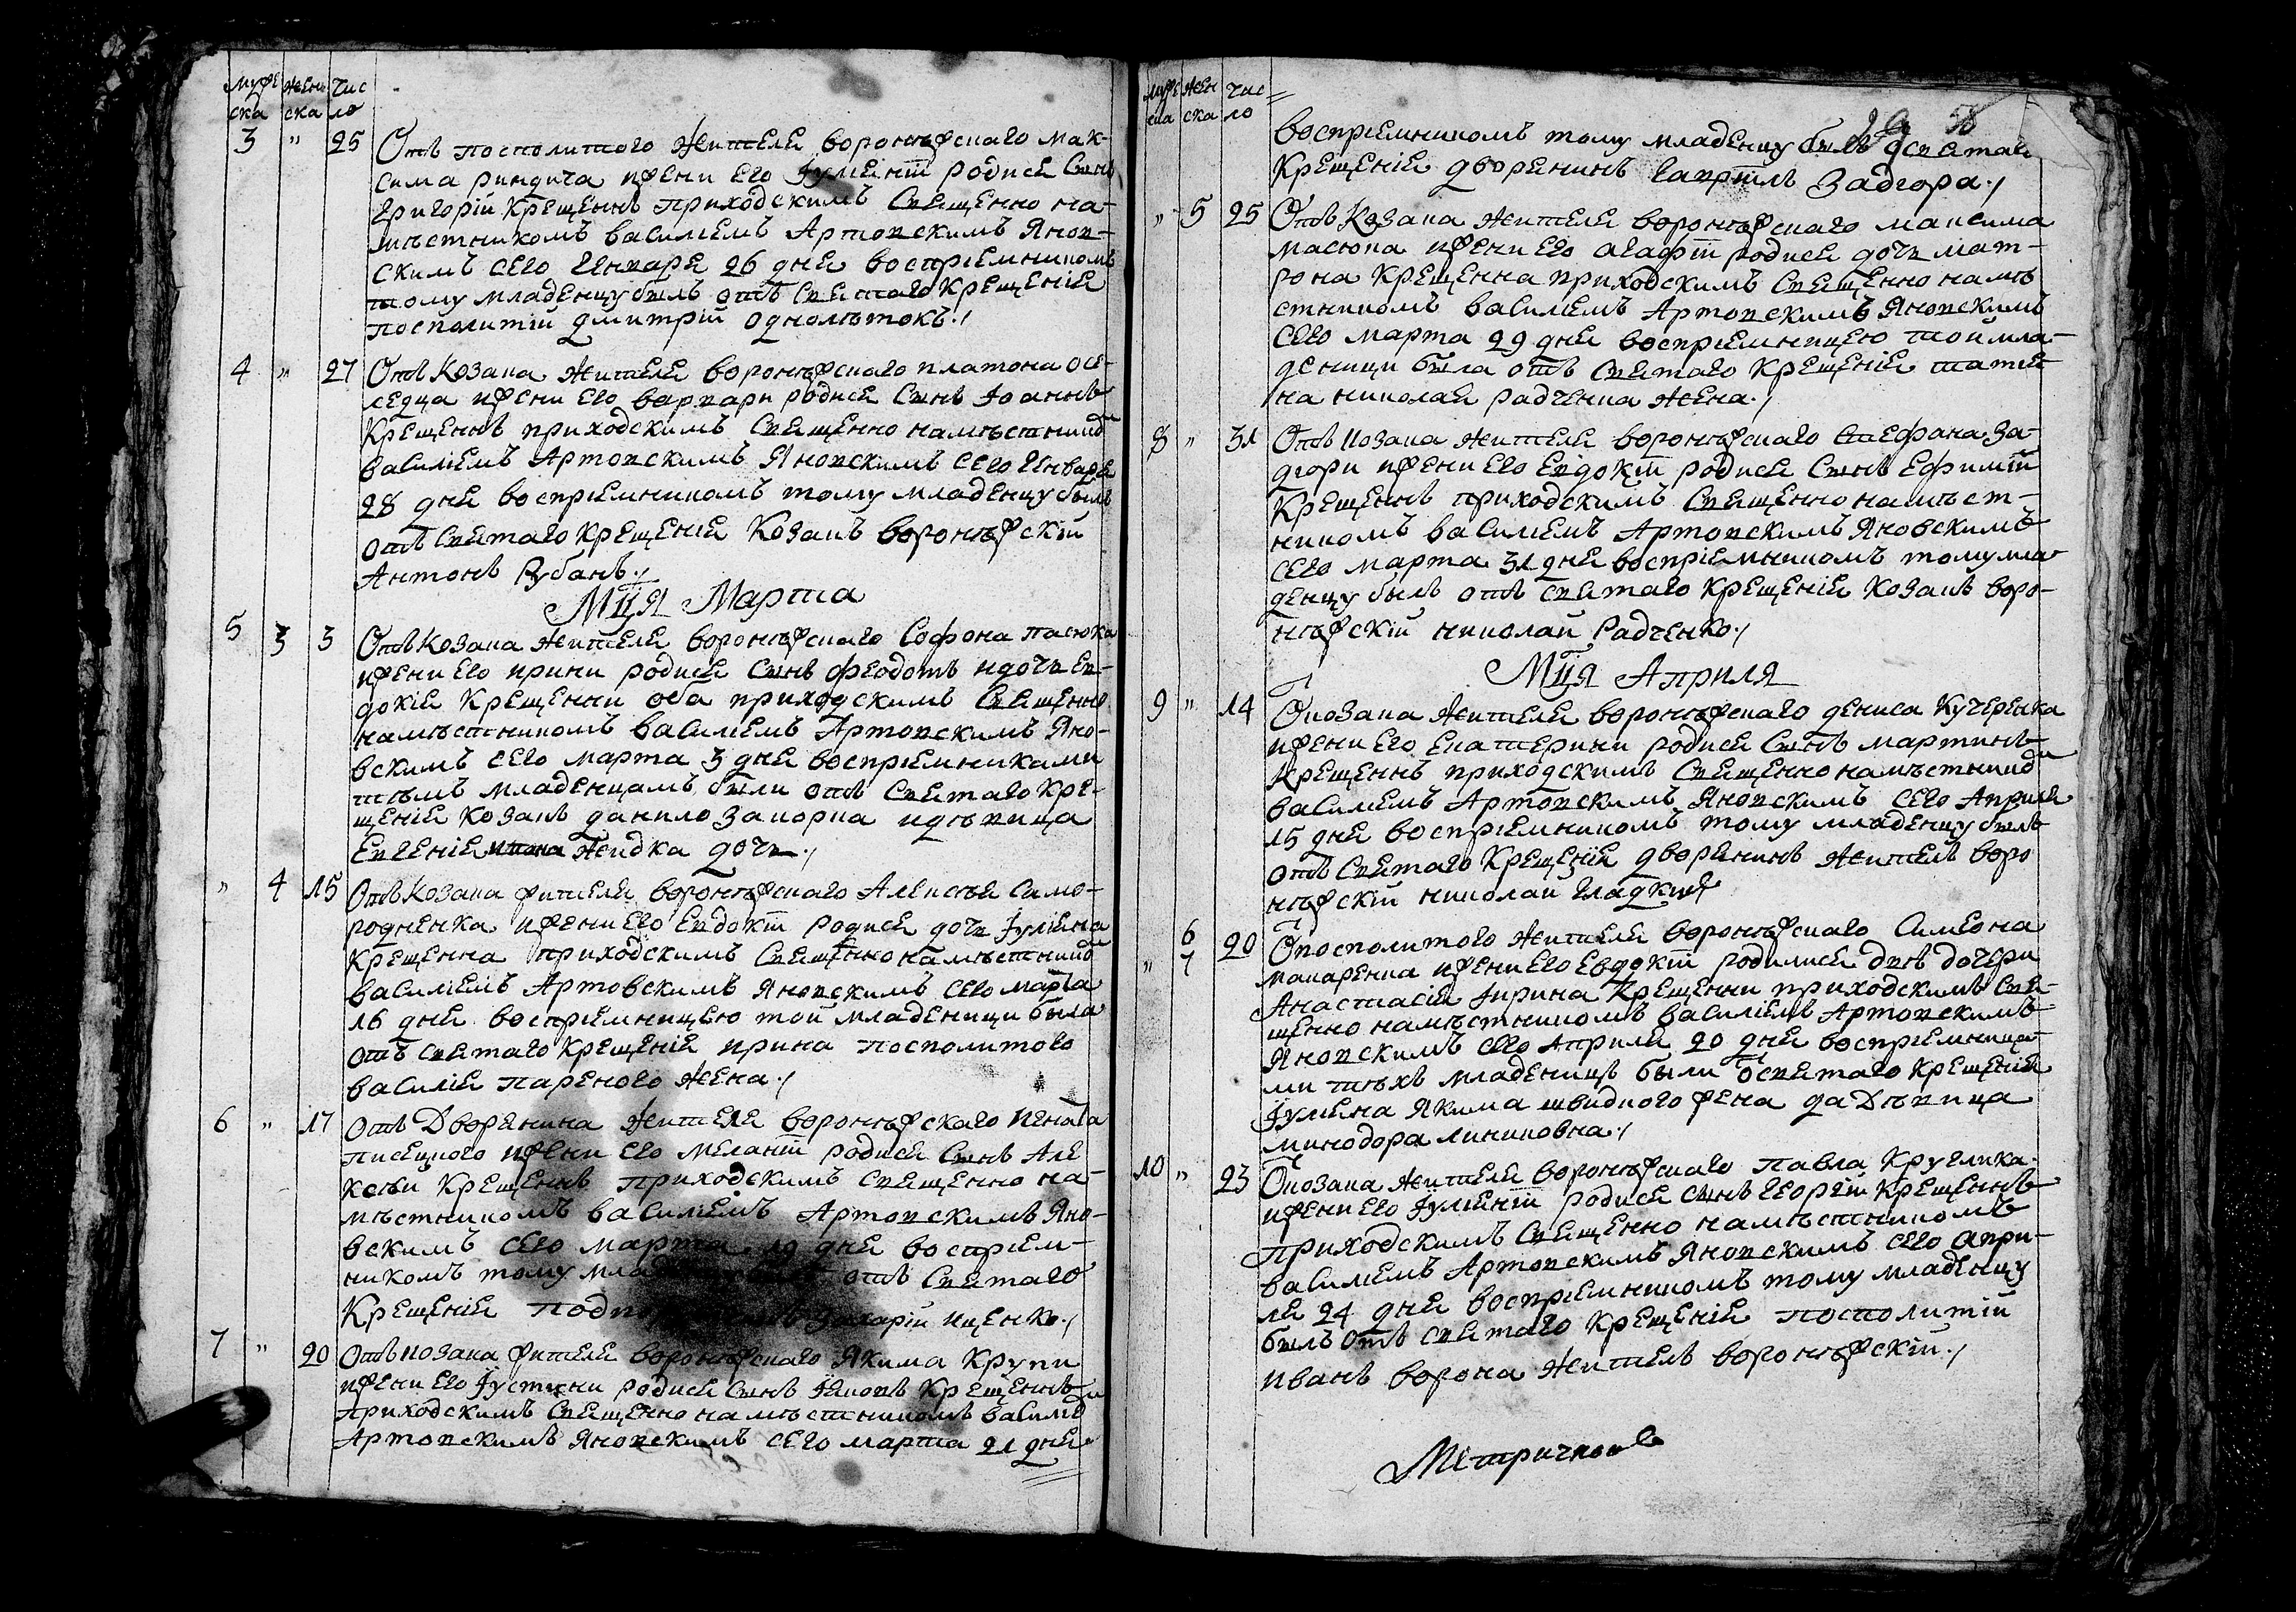 Мужеска Женска Число
3 " 25 Отъ посполитого жителя воронѣжскаго Мак-
сима Риндича и жени его Іулианіи родися Сынъ
Григорій Крещеннъ приходскимъ Священно на-
мѣстникомъ Василиемъ Артовскимъ Янов-
скимъ сего Генваря 26 дня восприемникомъ
тому младенцу былъ отъ Святаго Крещенія
посполитій Дмитрій Однолѣтокъ./
4 " 27 Отъ Козака жителя воронѣжскаго Платона Осе-
ледца и жени его Варвари родися Сынъ Іоаннъ
Крещеннъ приходскимъ Священно намѣстникомъ
Василіемъ Артовскимъ Яновскимъ сего Генваря
28 дня восприемникомъ тому младенцу былъ
отъ Святаго Крещенія Козакъ воронѣжскій
Антонъ Рубанъ./
Мця Марта
5 3 3 Отъ Козака жителя воронѣжскаго Софона Пасюка
и жени его Ирини родися Сынъ Феодотъ и дочь Ев-
докія Крещенни оба приходскимъ Священно
намѣстникомъ Василіемъ Артовскимъ Яно-
вскимъ сего марта 3 дня восприемниками
тѣмъ младенцамъ были отъ Святаго Кре-
щенія Козакъ Данило Запорка и дѣвица
Евгенія Жидка дочь./
" 4 15 Отъ Козака жителя воронѣжскаго Алексѣя Само-
родненка и жени его Евдокіи родися дочь Іулияна
Крещенна приходскимъ Священно намѣстникомъ
Василиемъ Артовскимъ Яновскимъ сего марта
16 дня восприемницею той младеници была
отъ Святаго Крещенія Ирина посполитого
Василія Пареного жена./
6 " 17 Отъ Дворянина жителя воронѣжскаго Игната
Писецкого и жени его Меланіи родися Сынъ Але
ксѣй Крещеннъ приходскимъ Священно на-
мѣстникомъ Василиемъ Артовскимъ Яно-
вскимъ сего марта 19 дня восприем-
никомъ тому отъ Святаго
Крещенія Захарій Ищенко./
7 " 20 Отъ козака жителя воронѣжскаго Якима Крупи
и жени его Іустини родися Сынъ Іяковъ Крещеннъ
приходскимъ Священно намѣстникомъ Василиемъ
Артовскимъ Яновскимъ сего марта 21 дня
Мужеска Женска Число
58
восприемникомъ тому младенцу былъ Ѿ Святаго
Крещенія дворянинъ Гавріилъ Задгора./
" 5 25 Отъ Козака жителя воронѣжскаго Максима
Масюка и жени его Агафіи родися дочь Мат-
рона Крещенна приходскимъ Священно намѣ
стникомъ Василиемъ Артовскимъ Яновскимъ
сего Марта 29 дня восприемницею той мла-
деници была отъ Святаго Крещенія Татия
на Николая Радченка жена./
8 " 31 Отъ козака жителя воронѣжскаго Стефана За-
дгори и жени его Евдокіи родися Сынъ Ефимій
Крещеннъ приходскимъ Священно намѣст-
никомъ Василиемъ Артовскимъ Яновскимъ
сего марта 31 дня восприемникомъ тому мла-
денцу былъ отъ Святаго Крещенія Козакъ воро-
нѣжскій Николай Радченко./
Мця Априля
9 " 14 Ѿ козака жителя воронѣжскаго Дениса Кучеренка
и жени его Екатерини родися Сынъ Мартинъ
Крещеннъ приходскимъ Священно намѣстникомъ
Василиемъ Артовскимъ Яновскимъ сего Априля
15 дня восприемникомъ тому младенцу былъ
отъ Святаго Крещенія дворянинъ житель воро
нѣжскій Николай Гладкий
" 6 7 20 Ѿ посполитого жителя воронѣжскаго Симеона
Макаренка и жени его Евдокіи родилися двѣ дочери
Анастасія Іирина Крещенни приходскимъ Свя-
щенно намѣстникомъ Василіемъ Артовскимъ
Яновскимъ сего Априля 20 дня восприемница-
ми тѣхъ младеницъ были Ѿ Святаго Крещенія
Іулияна Якима Швидкого жена да Дѣвица
Минодора Линиковна./
10 " 23 Ѿ козака жителя воронѣжскаго Павла Круглика
и жени его Іулианіи родися Сынъ Георгій Крещеннъ
приходскимъ Священно намѣстникомъ
Василиемъ Артовскимъ Яновскимъ сего Апри-
ля 24 дня восприемникомъ тому младенцу
былъ отъ Святаго Крещенія посполитій
Иванъ Ворона житель воронѣжскій./